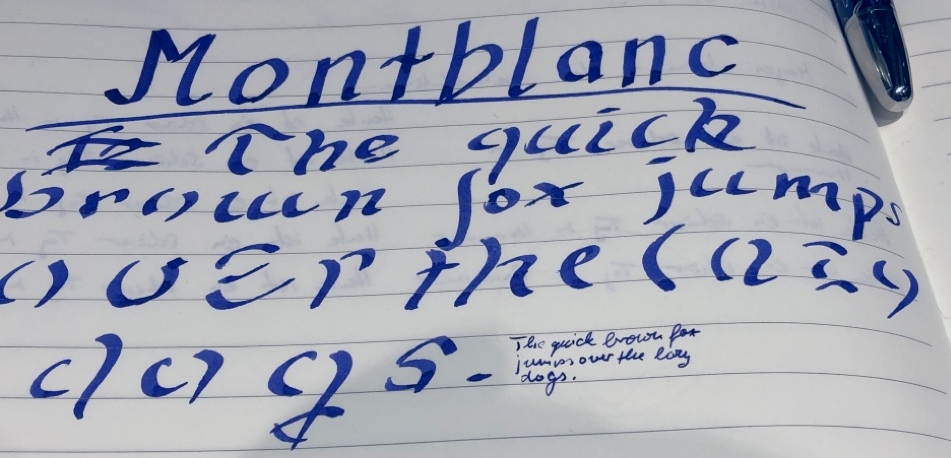 Montblanc
The quick
brown fox jumps
over the lazy
dogs.
The quick brown fox
jumps over the lazy
dogs.